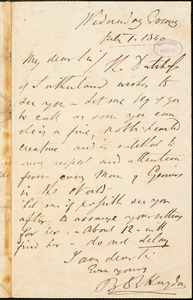 Wednesday Evening
July 1. 1840
My dear Sir/ The Dutchess
of Sutherland wishes to
see you – let me beg of you
to call as soon you can
she is a fine, noble hearted
creature – and is entitled to
even respect and attention
from every Man of Genius
in the World –
Let me if possible see you
after, to arrange your sitting
for her – about 12 – will
find her – do not delay
I am dear Sir
Ever yours
B R Haydon